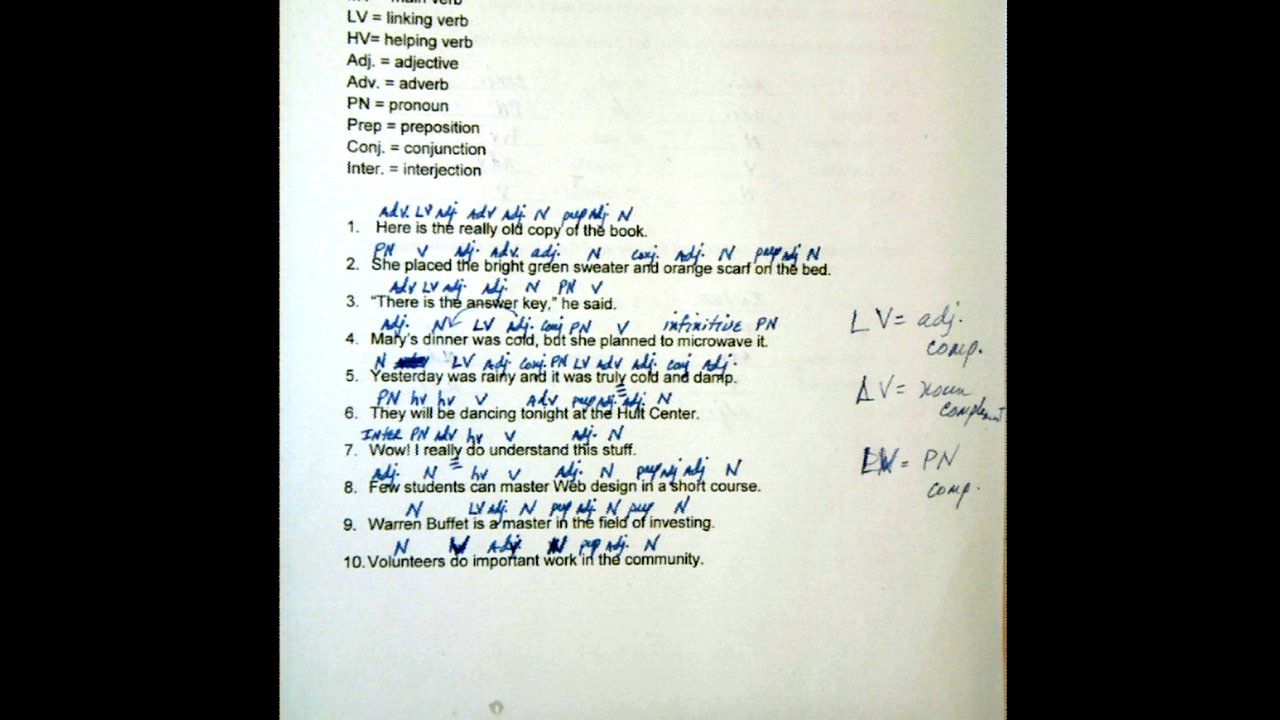 main verb
LV = linking verb
HV= helping verb
Adj. = adjective
Adv. = adverb
PN = pronoun
Prep = preposition
Conj. = conjunction
Inter. = interjection
Adv. LV Adj Adv Adj. N prep Adj. N
1. Here is the really old copy of the book.
PN V Adj. Adv. adj. N conj. Adj. N prep adj N
2. She placed the bright green sweater and orange scarf on the bed.
Adv LV adj. Adj. N PN V
3. "There is the answer key," he said.
Adj. N LV Adj. conj PN V infinitive PN
4. Mary's dinner was cold, but she planned to microwave it.
N LV Adj. conj. PN LV Adv Adj. conj Adj.
5. Yesterday was rainy and it was truly cold and damp.
PN hv hv V Adv prep Adj. Adj. N
6. They will be dancing tonight at the Hult Center.
Inter PN adv hv V Adj. N
7. Wow! I really do understand this stuff.
Adj. N hv V Adj. N prep Adj Adj N
8. Few students can master Web design in a short course.
N LV Adj. N prep Adj. N prep N
9. Warren Buffet is a master in the field of investing.
N V Adj. N prep Adj. N
10. Volunteers do important work in the community.
LV= adj.
comp.
LV= noun
complement
LV= PN
comp.